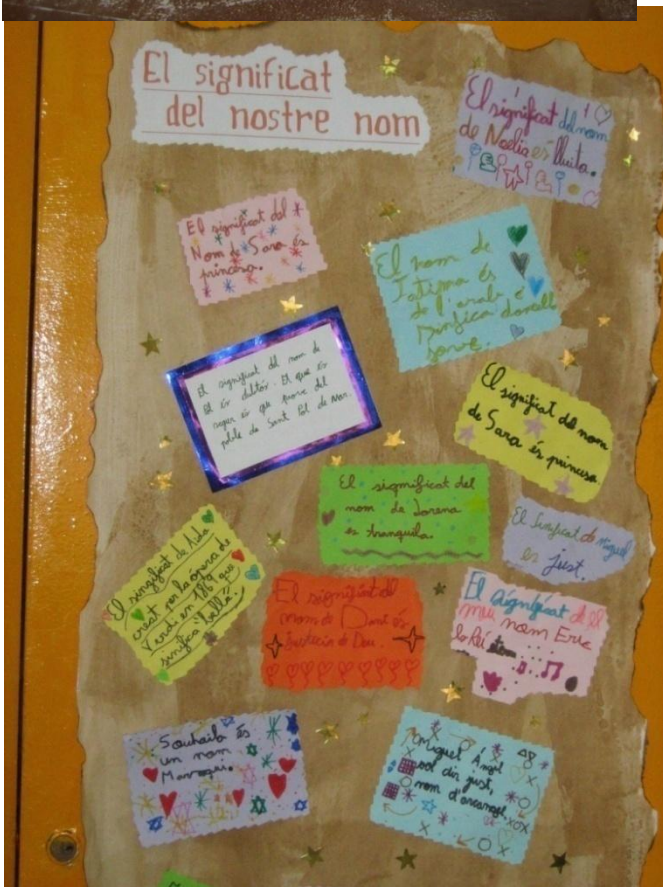 El significat
del nostre nom
El significat del nom
de Noelia és lluita.
El significat del
Nom de Sara és
princesa.
El nom de
Fatima és
de l'arab i
significa donall
jove.
El significat del nom de
és dubtós. El que és
segur és que prové del
poble de Sant Pol de Mar.
El significat del nom
de Sara és princesa
El significat del
nom de Lorena
és tranquila.
El Sinficat de miguel
es just.
El singificat de Aida
creat per la òpera de
Verdi en 1869 que
sinifica "bella"
El significat del
nom de Dani és
Justicia de Deu.
El significat de el
meu nom Eric
lo Rei etern
Souhaib és
un nom
Marroquí.
Miguel Àngel
vol dir just,
nom d'arcangel